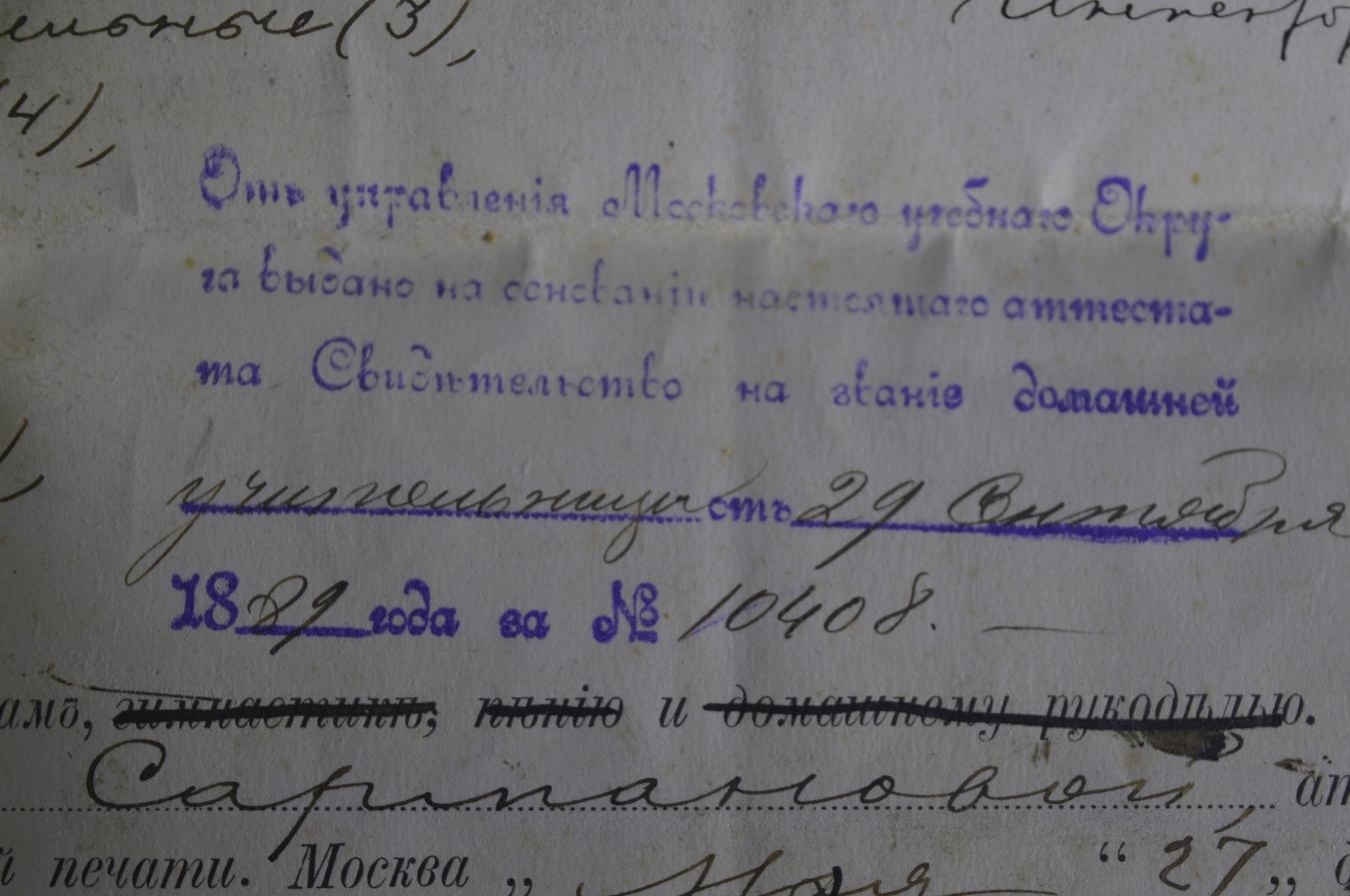 ельные (3),
(4),
Отъ управленія Московскаго учебнаго Окру-
га выдано на основаніи настоящаго аттеста-
та Свидѣтельство на званіе домашней
учительницы отъ 29 Октября
1889 года за № 10408. —
амъ, гимнастикѣ, пѣнію и домашнему рукодѣлью.
ат
й печати. Москва „ Мая “ 27„ д